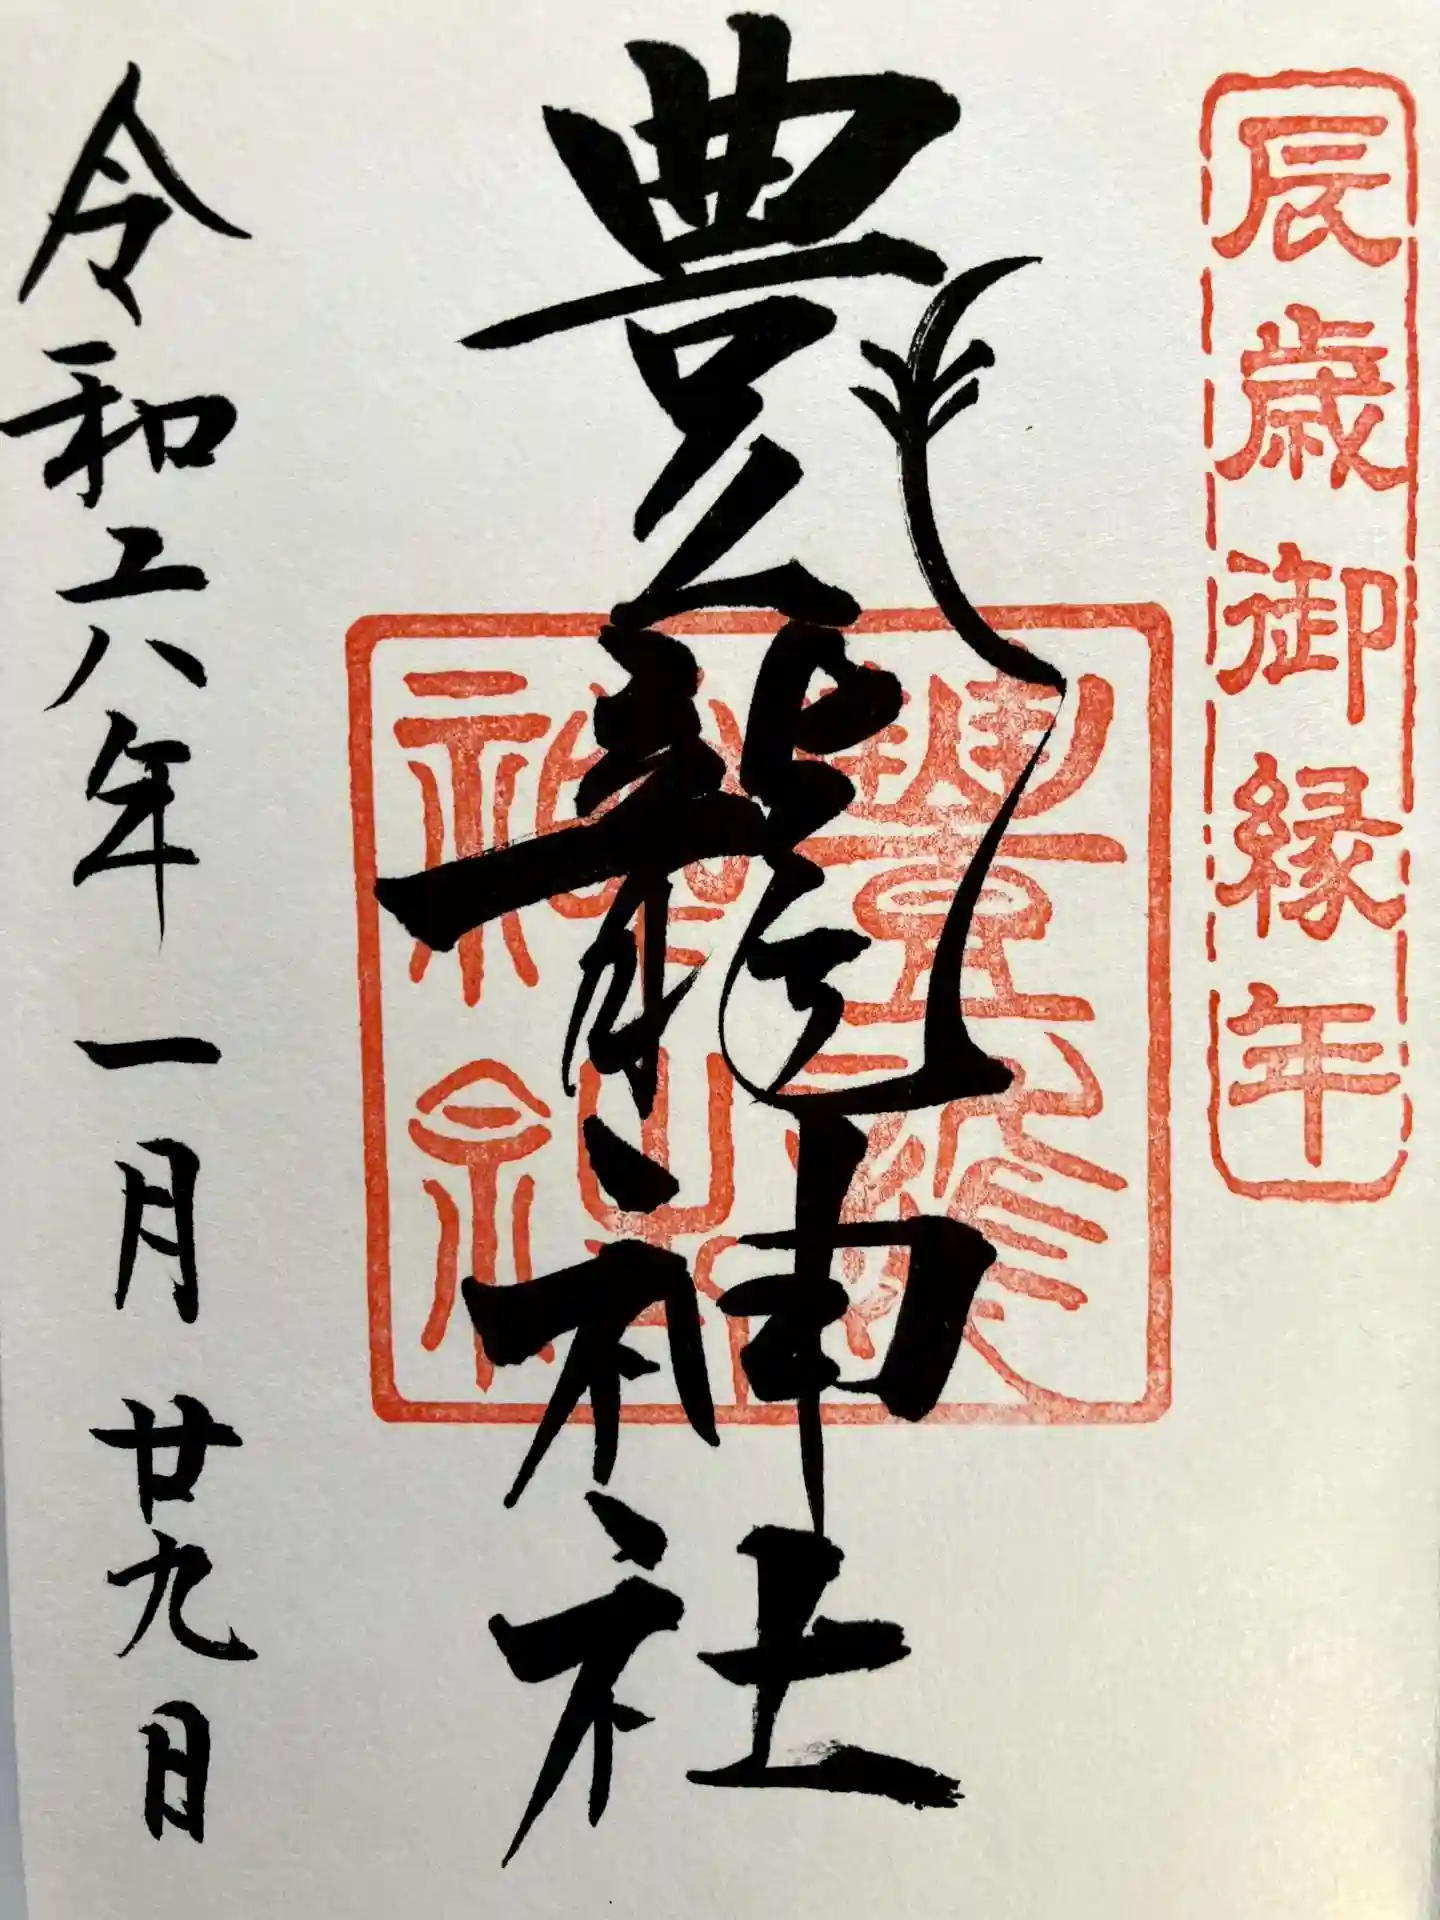 辰歳御縁年
豊龍神社
令和六年一月廿九日